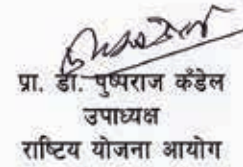 प्रा. डा. पुष्पराज कँडेल
उपाध्यक्ष
राष्टिय योजना आयोग